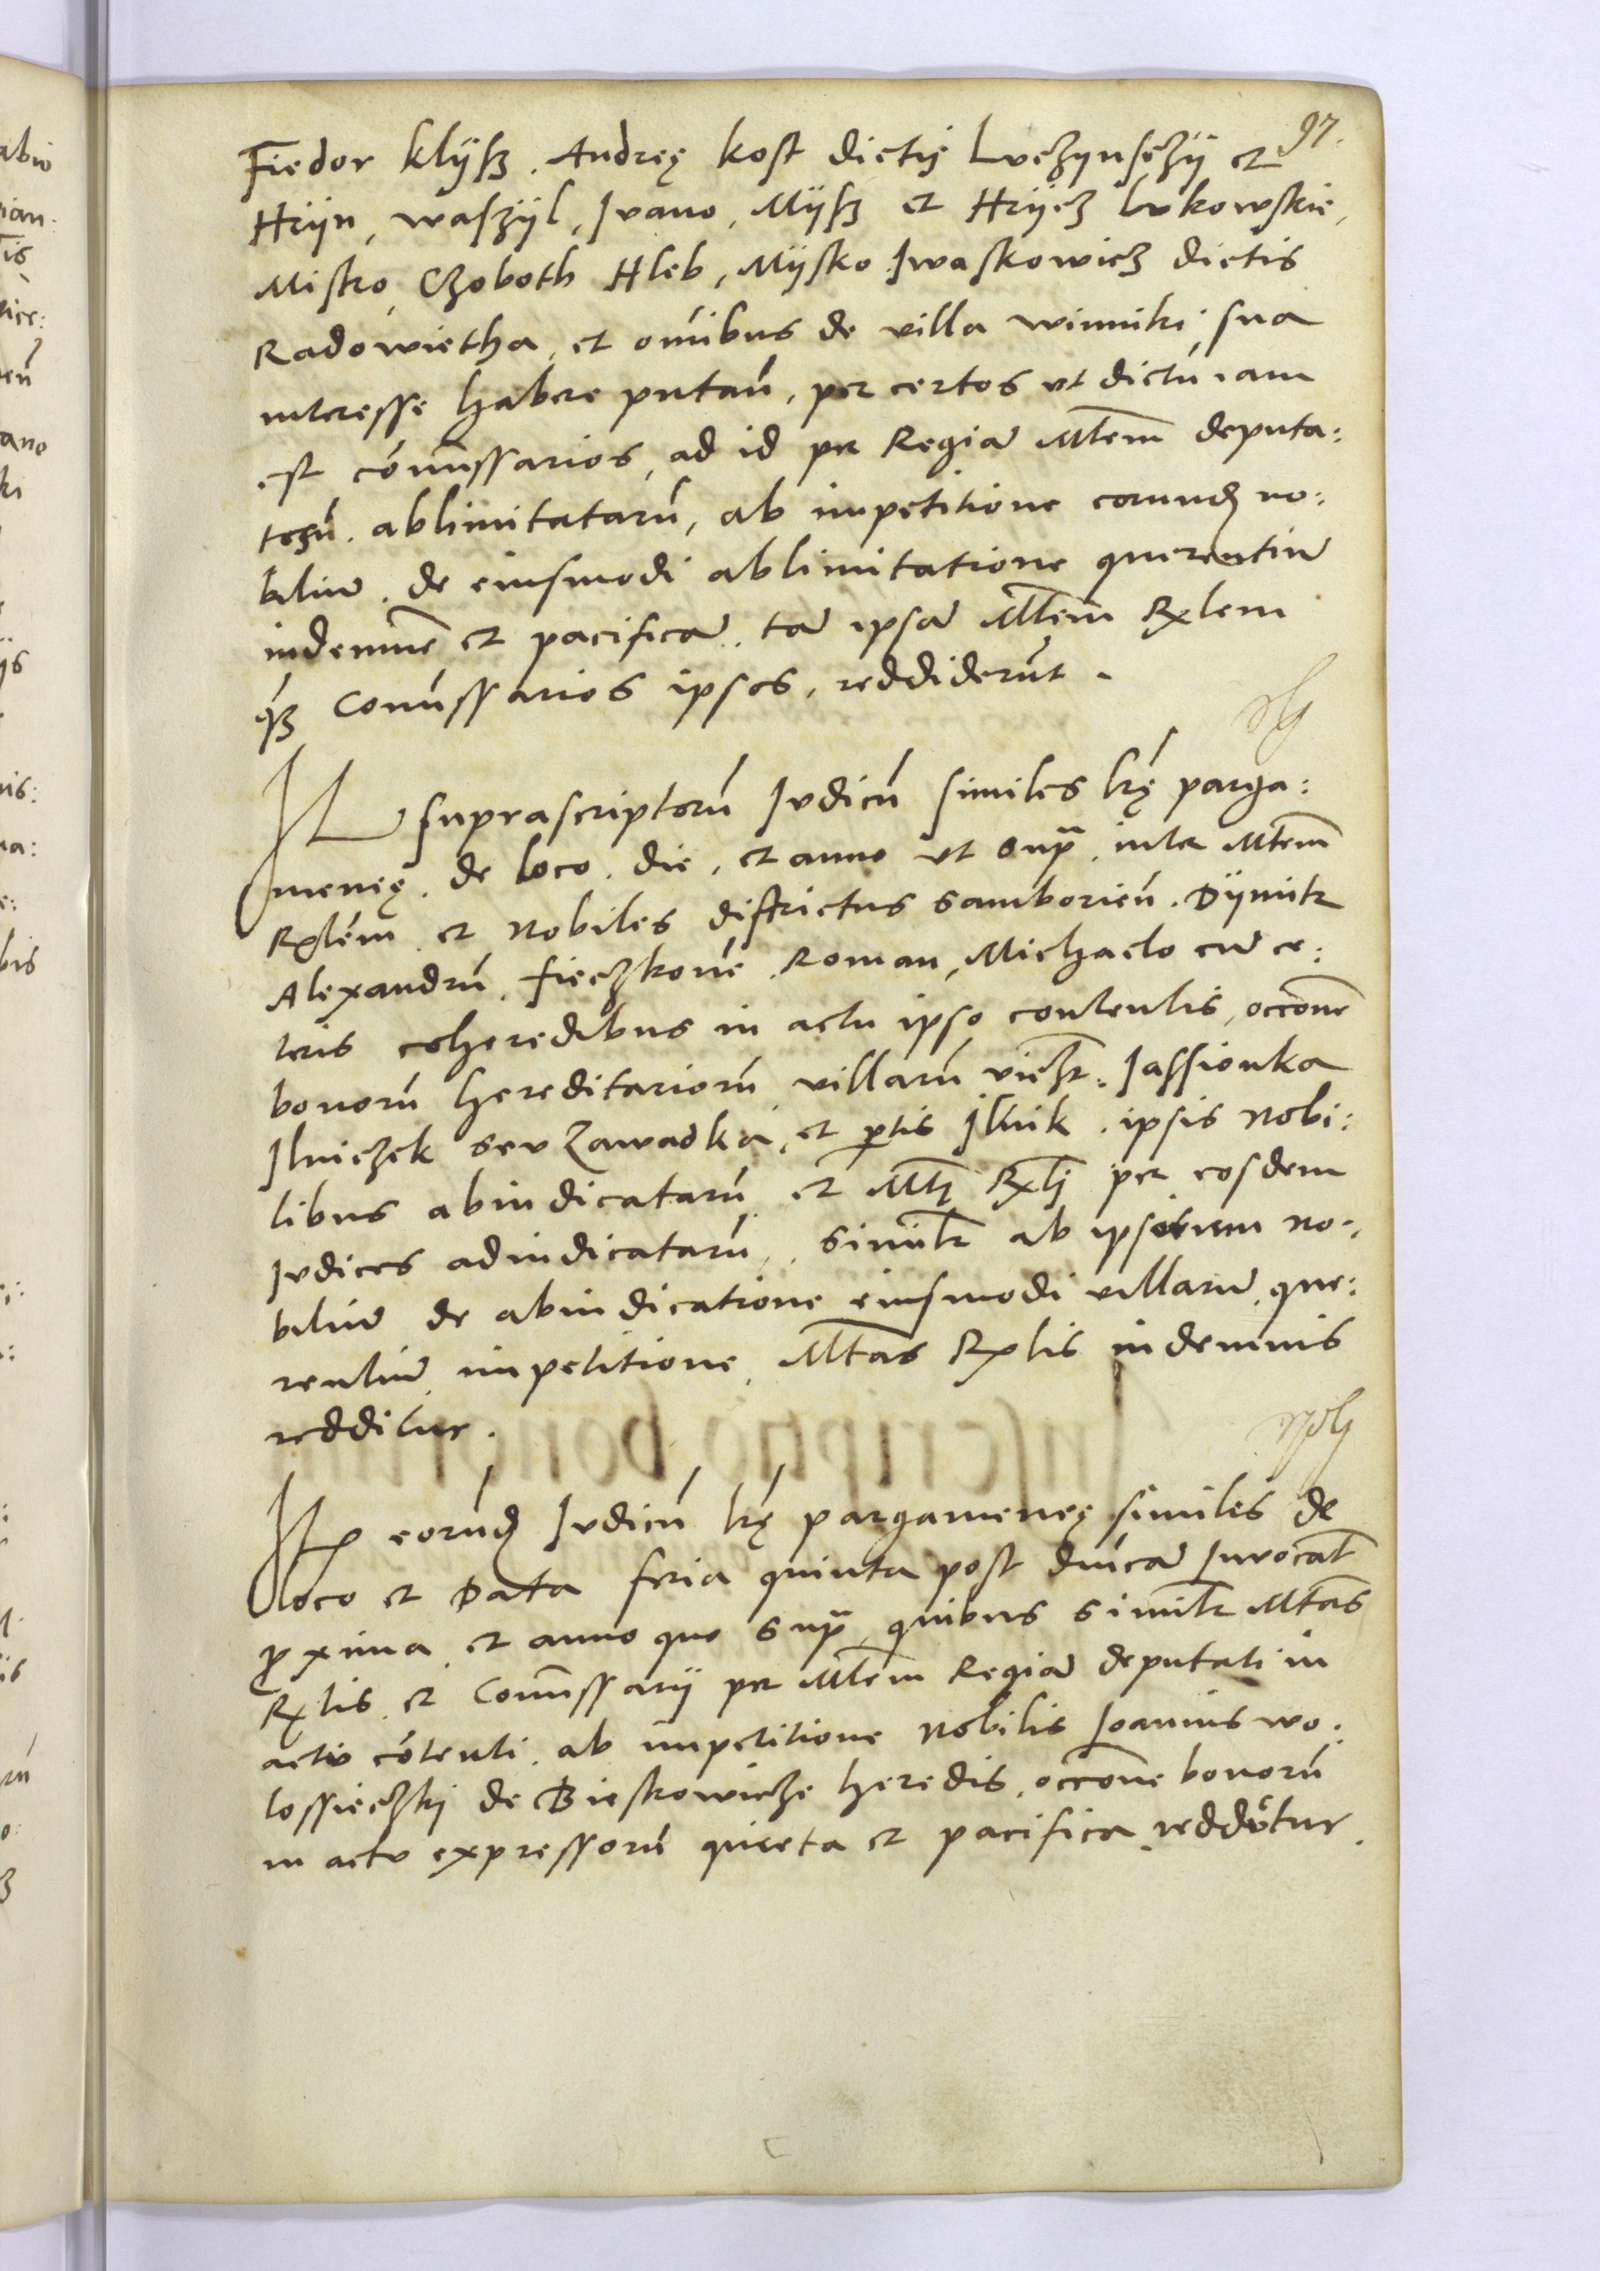 97.
Fiedor klÿsz. Andreę kost dictÿ Luczynsczÿ et
Hrÿn, waszÿl, Ivano, Mÿsz et Hrÿcz Lukowskie,
Misko Czoboth Hleb, Mÿsko Jwaskowicz dictis
Radowietha, et omībus de villa winniki sua
interesse habere putań, per certos vt dictū iam
est cōmissarios, ad id per Regiā Mtem̄ deputa:
tos ablimitatarū, ab impetitione eorund no:
biliū. de eiusmodi ablimitatione querentiū
indemnē et pacificā. tā ipsā Mtem̄ Rglem
q̄z Comissarios ipsos, reddiderūt.
It suprascriptorū Iudicū similes lrę parga:
meneę. de loco. die. et anno vt supr̄. inter Mtem̄
Rglēm et Nobiles districtus samborień. Dÿmitr
Alexandrū. fieczkonē Roman, Michaelo cū ce:
teris coheredibus in actu ipso contentis, occ̄one
bonorū hereditariorū villarū viczt: Jassionka
Ilniczek seu Zawadka, et ptis Jlnik. ipsis Nobi:
libus abiudicatarū et Mtj Rgłj per eosdem
Iudices adiudicatarū, simiłr ab ipsorum no:
biliū de abiudicatione eiusmodi villarū que:
rentiū impetitione, Mtas Rglis indemnis
redditur.
It eorūd Iudicū lrę pargameneę similes de
loco et Data feria quinta post dnicā Inuocat
proxima et anno quo supr̄ quibus simiłr Mtas
Rglis et Comissarÿ per Mtem̄ Regiā deputati in
actu cōtenti. ab impetitione Nobilis Joannis wo:
lossieczkj de Bieskowicze heredis. occ̄one bonorū
in actu expressorū quieta et pacifica reddūtur.